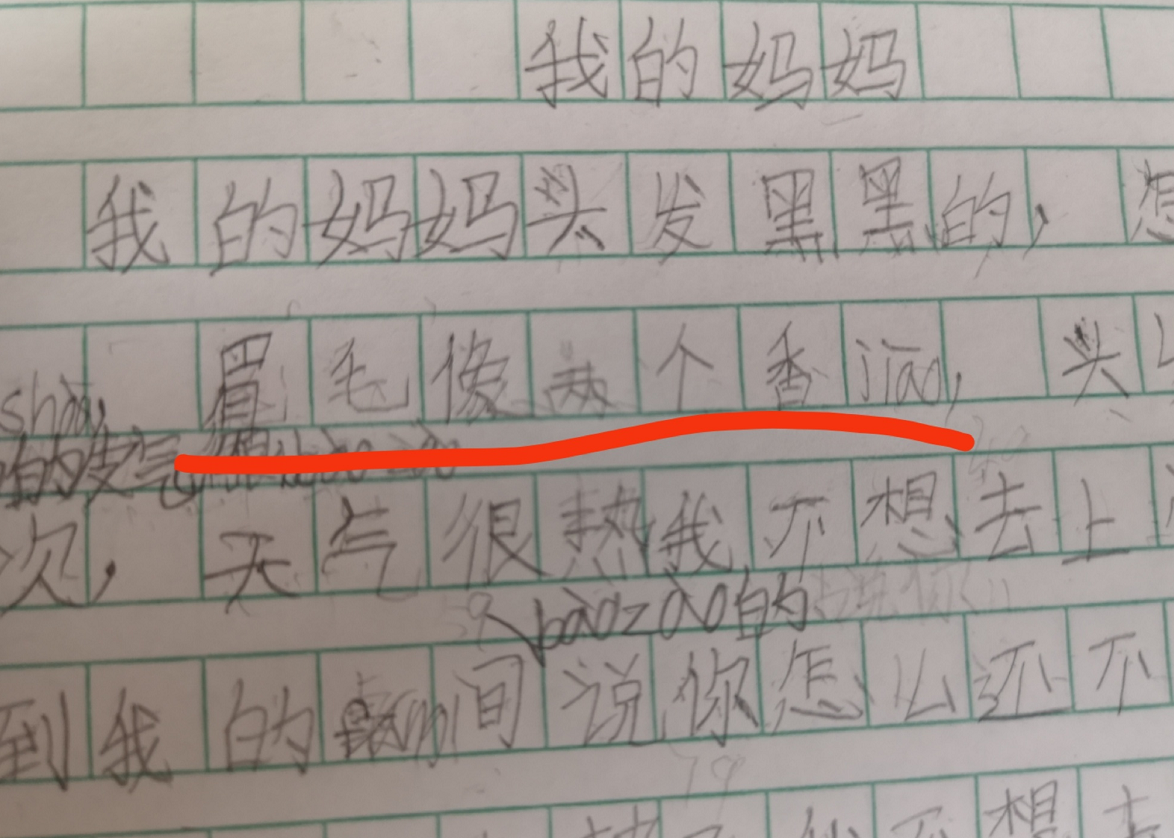 我的妈妈
我的妈妈头发黑黑的，怎
眉毛像两个香jiāo，头
的皮气
次，天气很热我不想去上
bàozào的
到我的 间说你怎么还不
想去